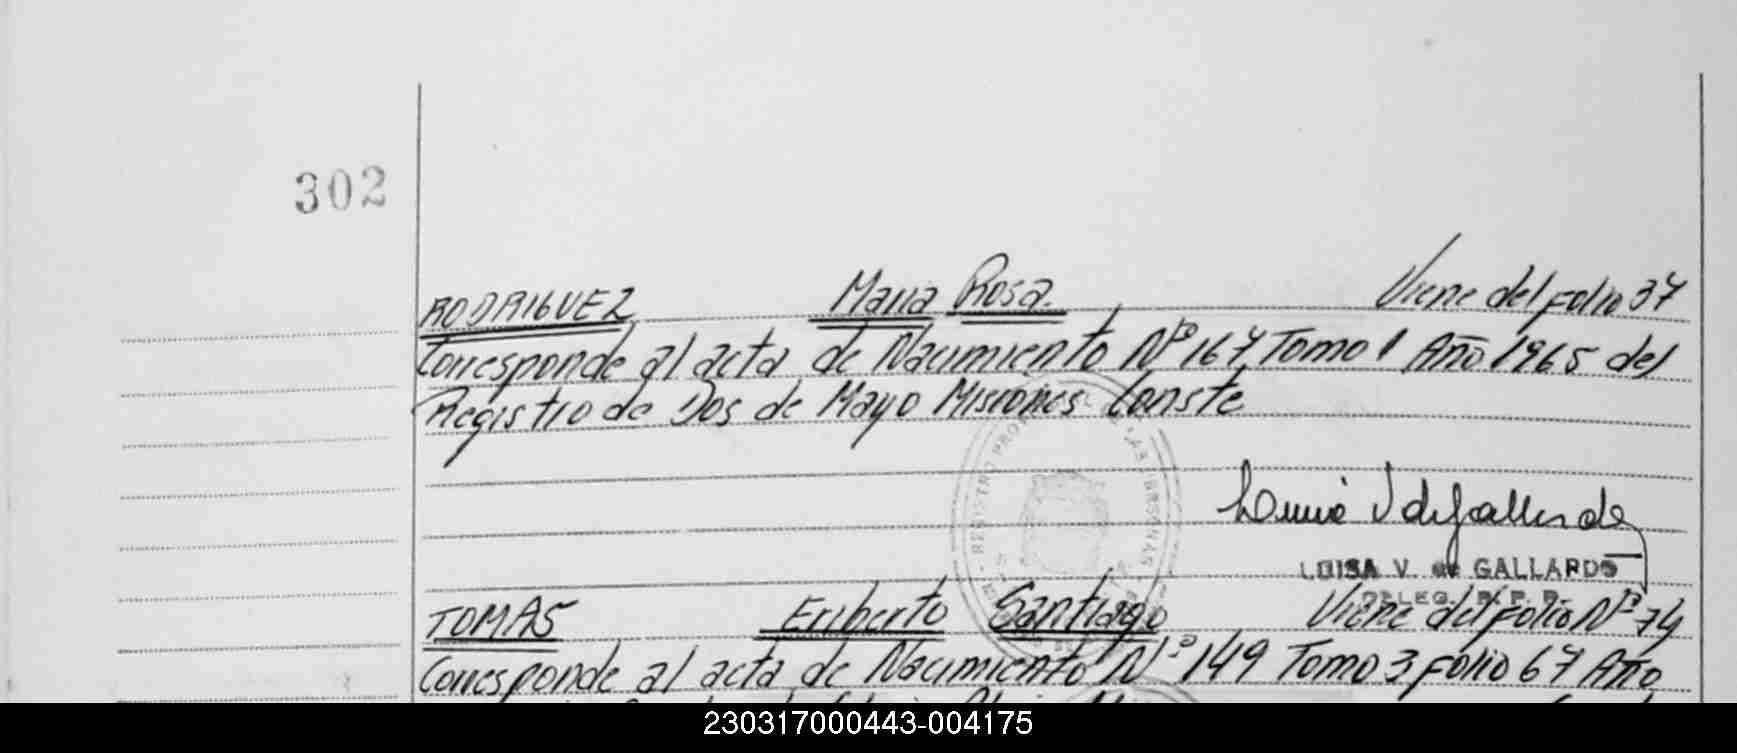 302
RODRIGUEZ Maria Rosa. Viene del folio 37
Corresponde al acta de Nacimiento Nº 167 Tomo 1 Año 1965 del
Registro de Dos de Mayo Misiones Conste
REGISTRO
LUISA V. de GALLARDO
DELEG. R. P. P.
TOMAS Eriberto Santiago Viene del folio Nº 74
Corresponde al acta de Nacimiento Nº 149 Tomo 3 folio 67 Año
230317000443-004175